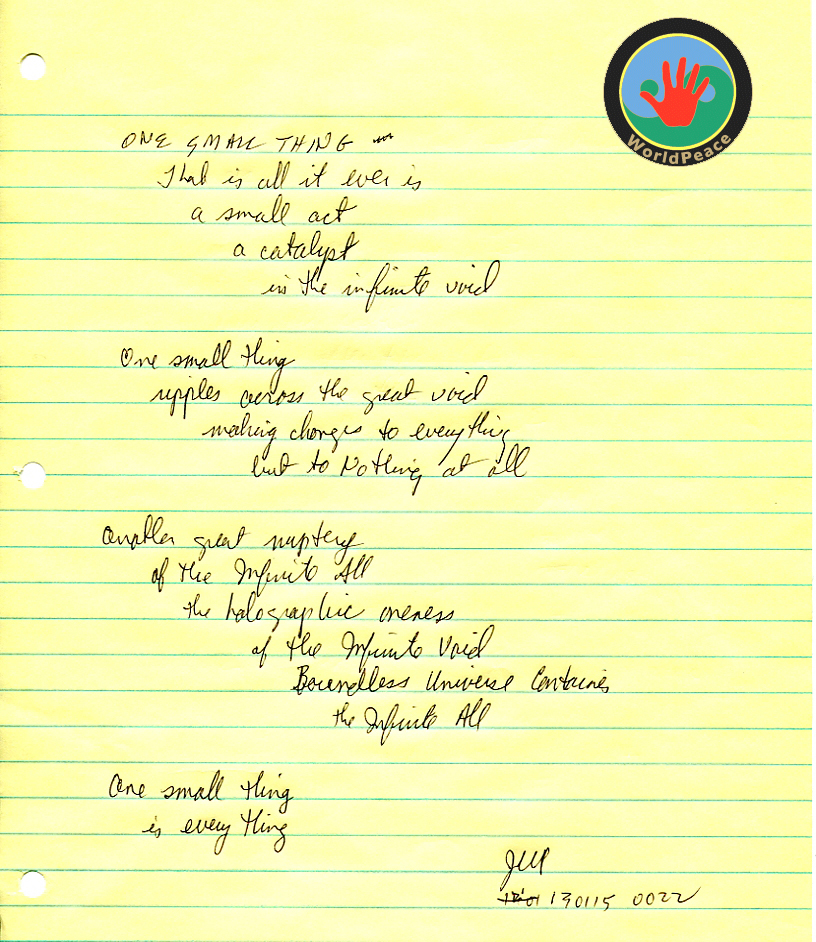 WorldPeace
ONE SMALL THING
That is all it ever is
a small act
a catalyst
in the infinite void
One small thing
ripples across the great void
making changes to everything
but to Nothing at all
Another great mystery
of the Infinite All
the holographic oneness
of the Infinite Void
Boundless Universe Contains
the Infinite All
One small thing
is every thing
130115 0022